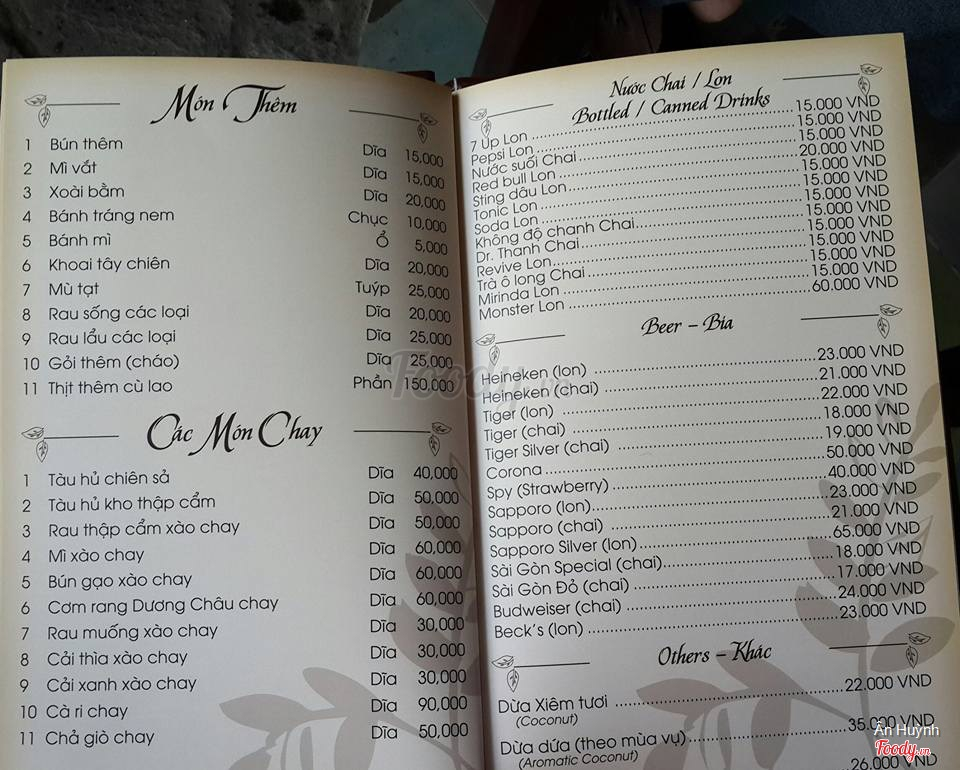 Món Thêm
1 Bún thêm Dĩa 15,000
2 Mì vắt Dĩa 15,000
3 Xoài bằm Dĩa 20,000
4 Bánh tráng nem Chục 10,000
5 Bánh mì Ổ 5,000
6 Khoai tây chiên Dĩa 20,000
7 Mù tạt Tuýp 25,000
8 Rau sống các loại Dĩa 20,000
9 Rau lẩu các loại Dĩa 25,000
10 Gỏi thêm (cháo) Dĩa 25,000
11 Thịt thêm cù lao Phần 150,000
Các Món Chay
1 Tàu hủ chiên sả Dĩa 40,000
2 Tàu hủ kho thập cẩm Dĩa 50,000
3 Rau thập cẩm xào chay Dĩa 50,000
4 Mì xào chay Dĩa 60,000
5 Bún gạo xào chay Dĩa 60,000
6 Cơm rang Dương Châu chay Dĩa 60,000
7 Rau muống xào chay Dĩa 30,000
8 Cải thìa xào chay Dĩa 30,000
9 Cải xanh xào chay Dĩa 30,000
10 Cà ri chay Dĩa 90,000
11 Chả giò chay Dĩa 50,000
Nước Chai / Lon
Bottled / Canned Drinks
7 Up Lon 15.000 VND
Pepsi Lon 15.000 VND
Nước suối Chai 15.000 VND
Red bull Lon 20.000 VND
Sting dâu Lon 15.000 VND
Tonic Lon 15.000 VND
Soda Lon 15.000 VND
Không độ chanh Chai 15.000 VND
Dr. Thanh Chai 15.000 VND
Revive Lon 15.000 VND
Trà ô long Chai 15.000 VND
Mirinda Lon 15.000 VND
Monster Lon 60.000 VND
Beer – Bia
Heineken (lon) 23.000 VND
Heineken (chai) 21.000 VND
Tiger (lon) 22.000 VND
Tiger (chai) 18.000 VND
Tiger Silver (chai) 19.000 VND
Corona 50.000 VND
Spy (Strawberry) 40.000 VND
Sapporo (lon) 23.000 VND
Sapporo (chai) 21.000 VND
Sapporo Silver (lon) 65.000 VND
Sài Gòn Special (chai) 18.000 VND
Sài Gòn Đỏ (chai) 17.000 VND
Budweiser (chai) 24.000 VND
Beck's (lon) 23.000 VND
Others – Khác
Dừa Xiêm tươi 22.000 VND
(Coconut)
Dừa dứa (theo mùa vụ) 35.000 VND
(Aromatic Coconut)
26.000 VND
Foody.vn
Ân Huỳnh
Foody.vn